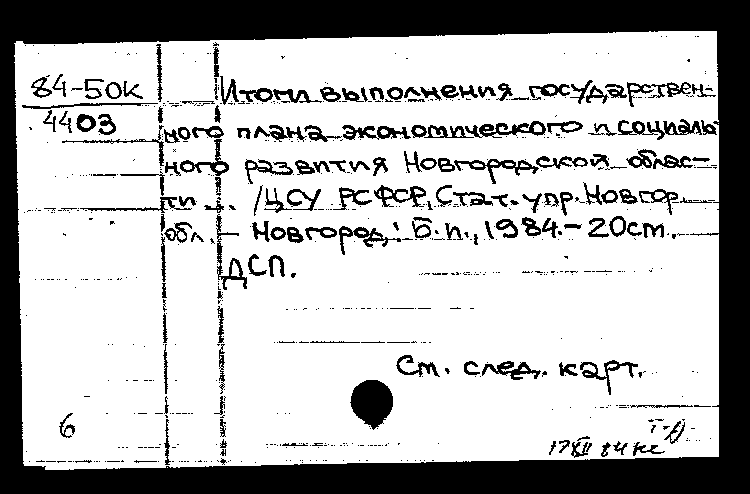 84-50к Итоги выполнения государствен-
4403 ного плана экономического и социаль
ного развития Новгородской облас-
ти ... /ЦСУ РСФСР, Стат. упр. Новгор.
обл. – Новгород: Б.и., 1984. – 20 см.
ДСП.
См. след. карт.
6